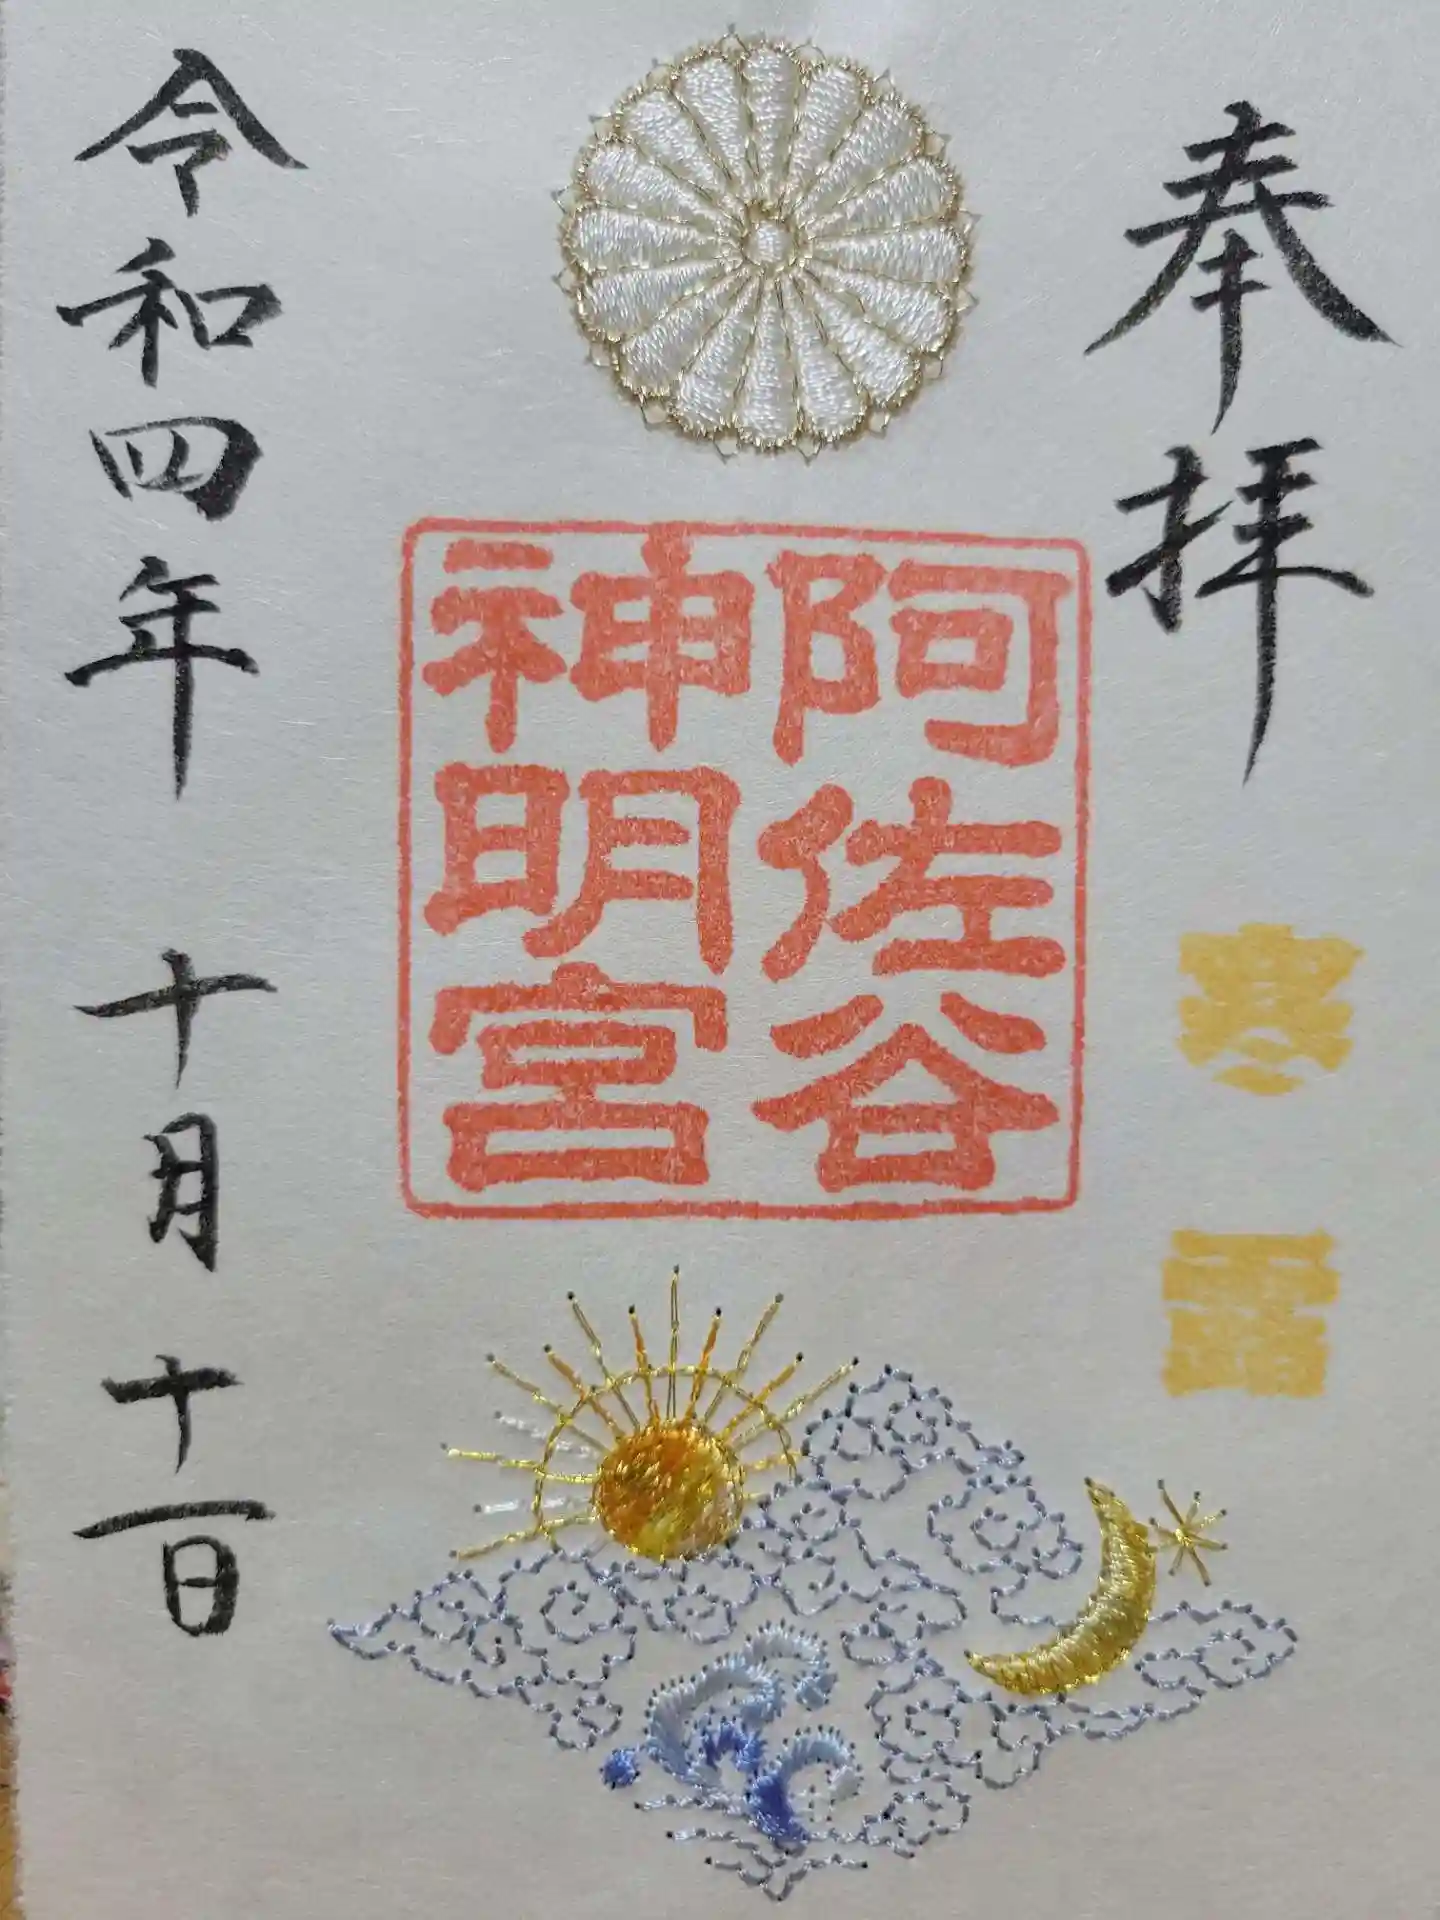 奉拝
寒露
阿佐谷
神明宮
令和四年 十月 十一日